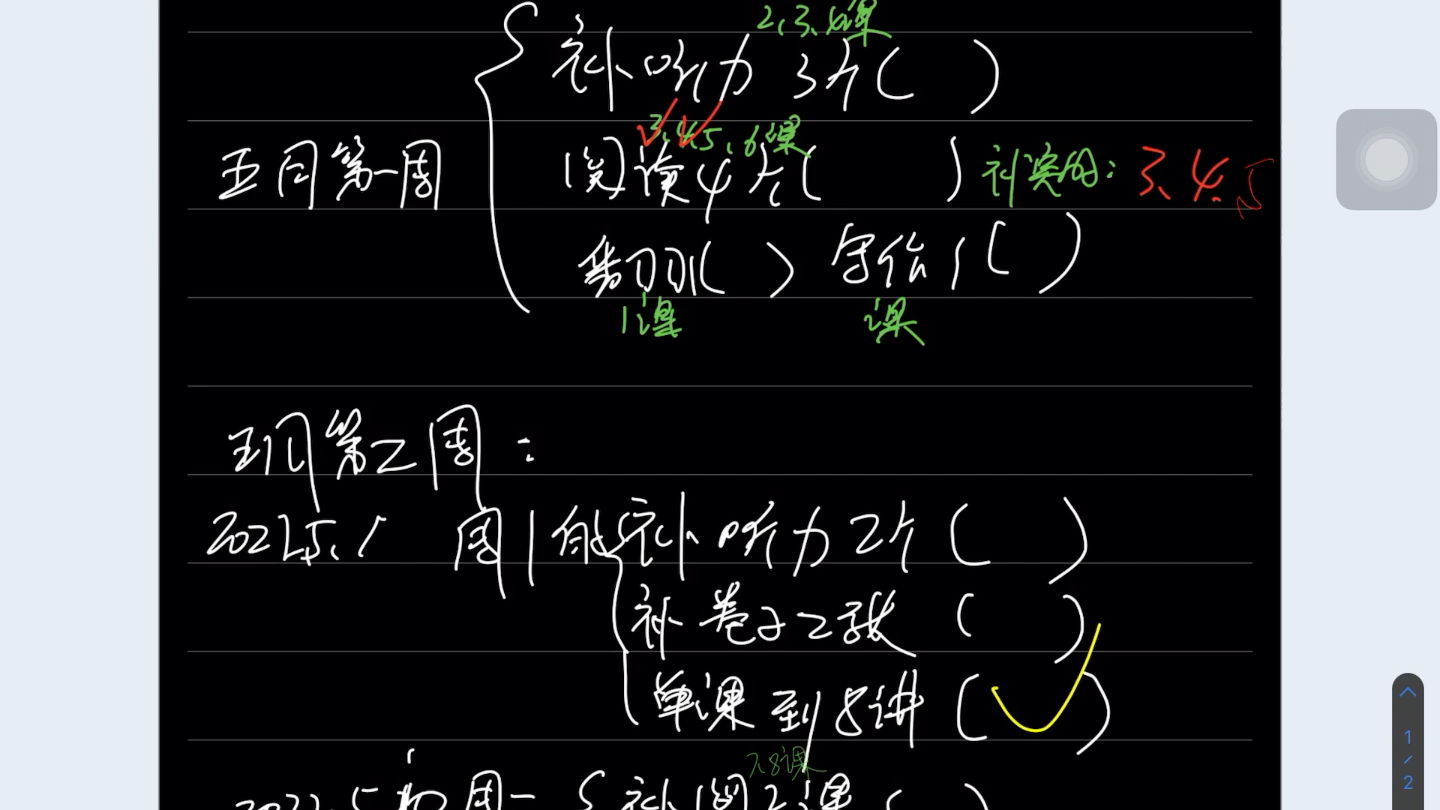 2、3、4课
补听力3个( )
3、4、5、6课
五月第一周 阅读4个( ) 补案的: 3、4、5
翻训( ) 写作1( )
1课 课
五月第二周:
2022.5.1 周1的 补听力2个( )
补卷子2张( )
单课到8讲( )
7、8课
2022.5 周一 补阅2课( )
1
/
2